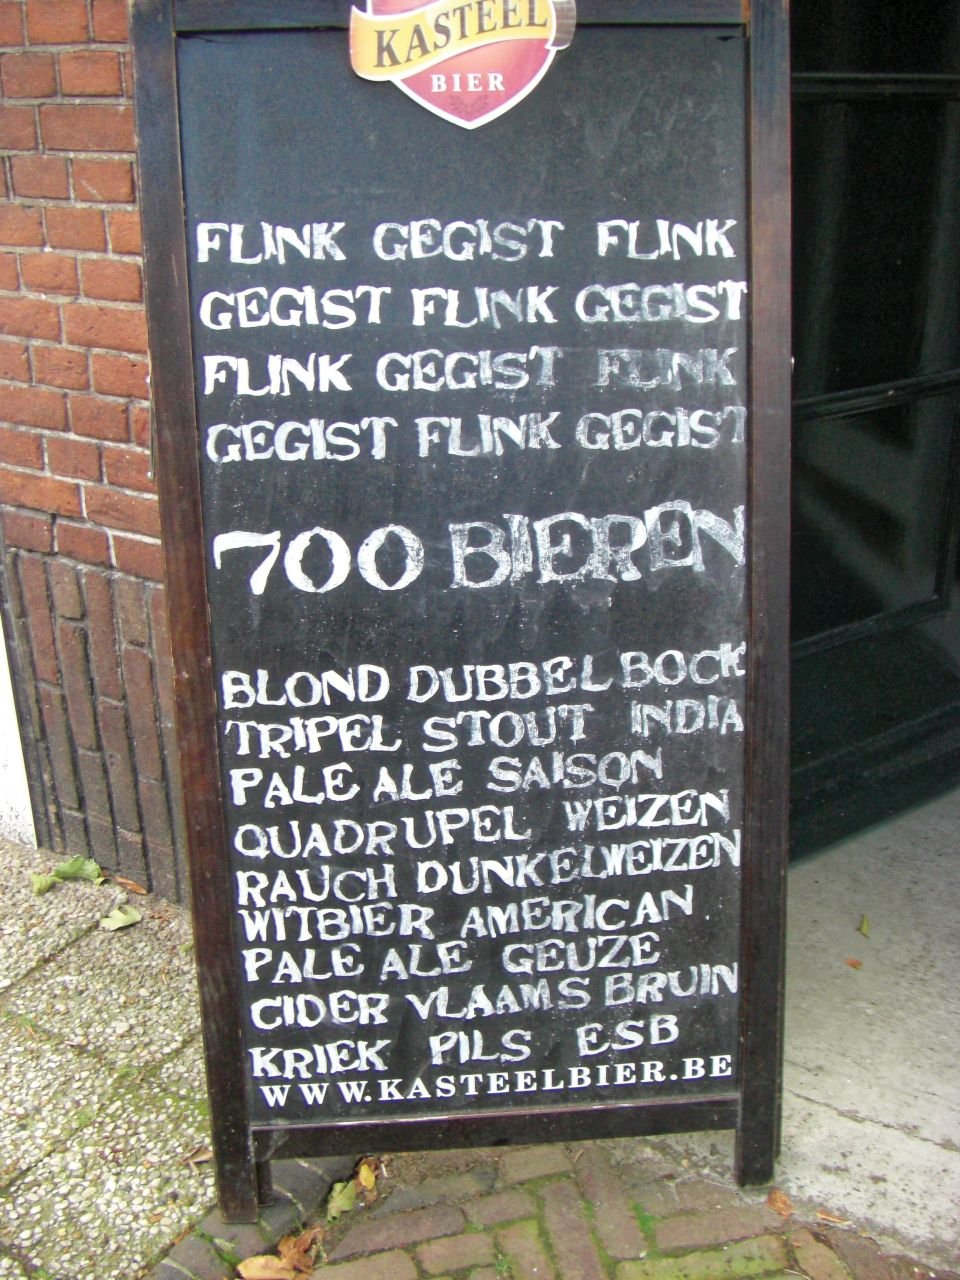 KASTEEL
BIER
FLINK GEGIST FLINK
GEGIST FLINK GEGIST
FLINK GEGIST FLINK
GEGIST FLINK GEGIST
700 BIEREN
BLOND DUBBEL BOCK
TRIPEL STOUT INDIA
PALE ALE SAISON
QUADRUPEL WEIZEN
RAUCH DUNKELWEIZEN
WITBIER AMERICAN
PALE ALE GEUZE
CIDER VLAAMS BRUIN
KRIEK PILS ESB
WWW.KASTEELBIER.BE